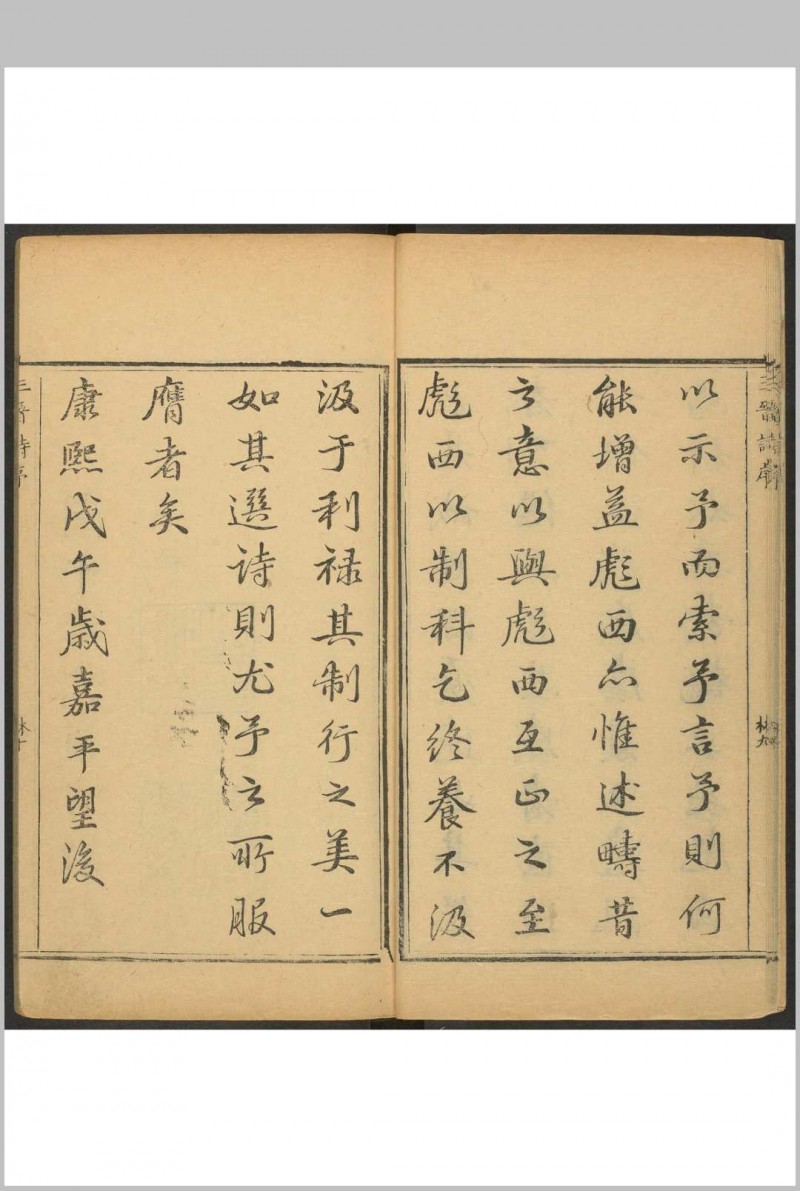 三晉詩序
林九
以示予而索予言予則何
能增益彪西亦惟述疇昔
之意以與彪西互正之至
彪西以制科乞終養不汲
汲于利祿其制行之美一
如其選詩則尤予之所服
膺者矣
康熙戊午歲嘉平望後
三晉詩序
林十